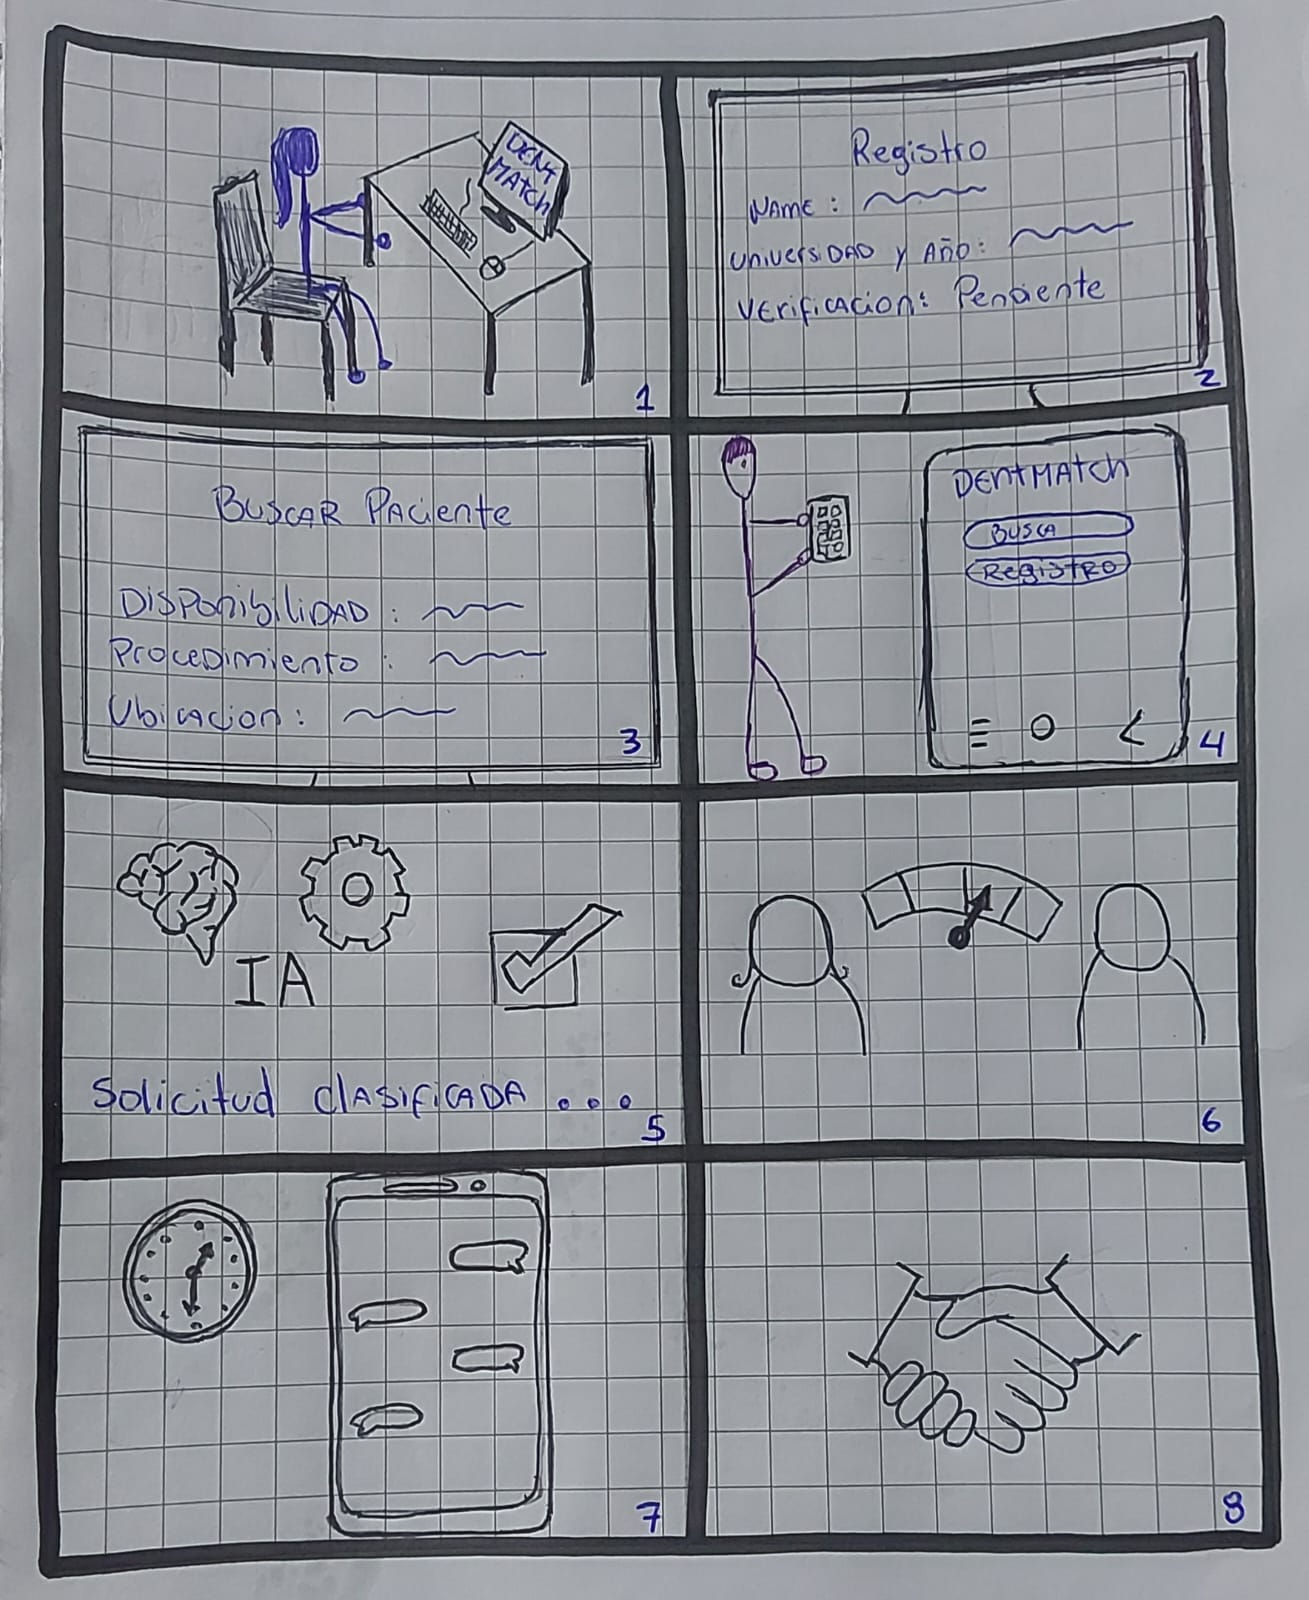 DENT
MATCH
1
Registro
NAME :
UNIVERSIDAD Y AÑO:
VERIFICACION: Pendiente
2
BUSCAR PACIENTE
DISPONIBILIDAD :
PROCEDIMIENTO :
UBICACION :
3
DENTMATCH
BUSCA
REGISTRO
4
IA
Solicitud CLASIFICADA ...
5
6
7
8